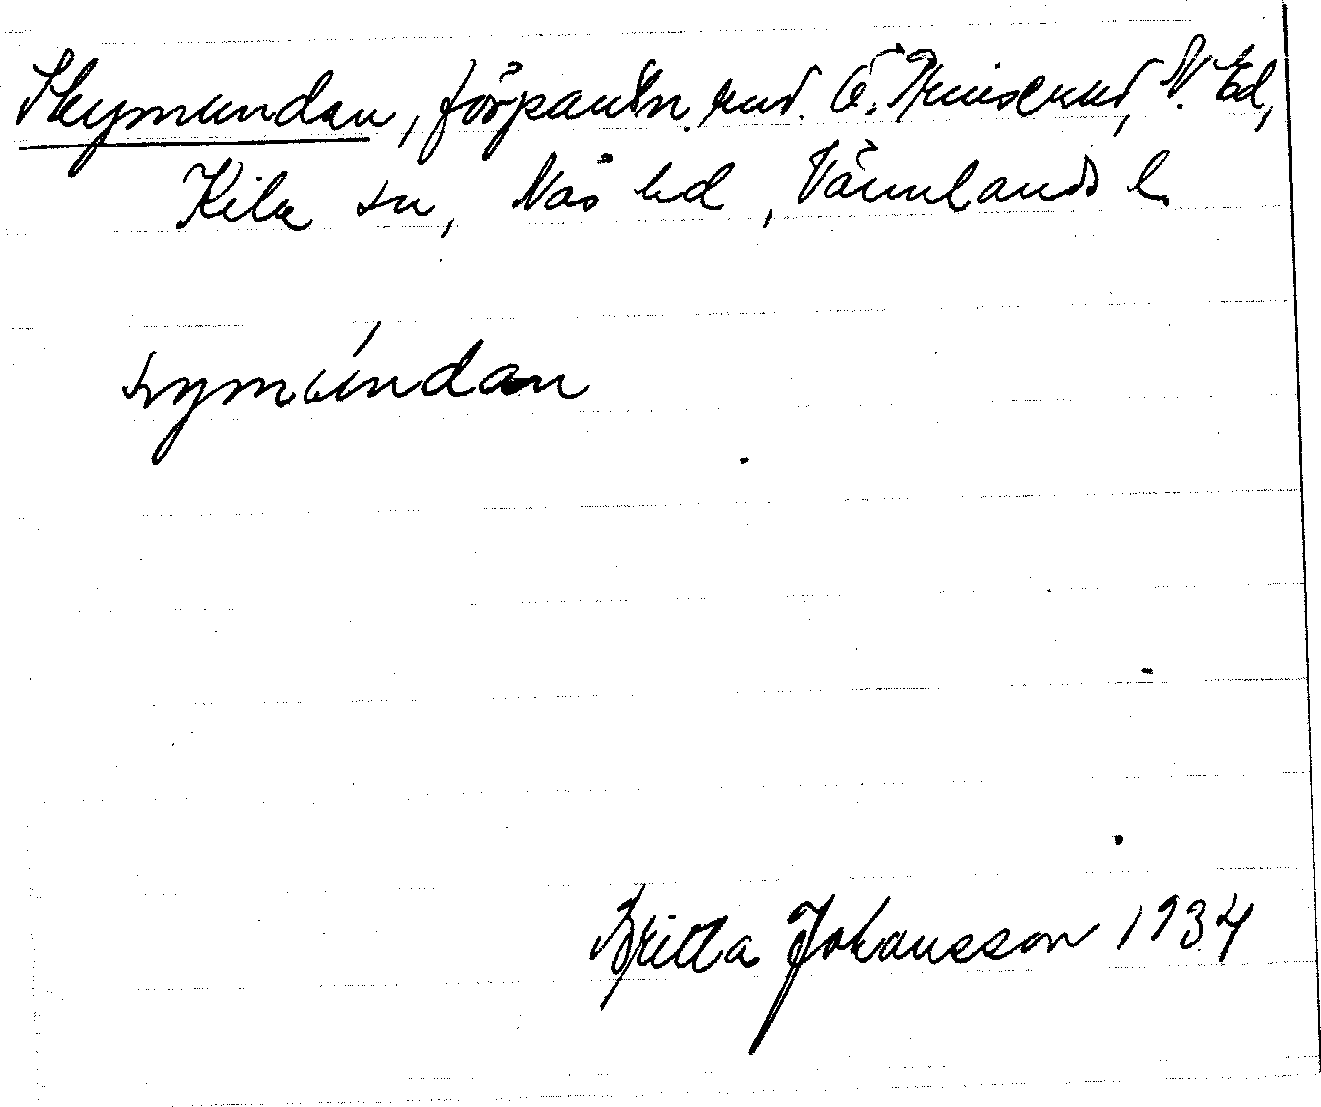 Skymundan, förpantn. und. Ö. Ed,
Kila sn, Näs hd, Värmlands l.
symúndan
Britta Johansson 1934